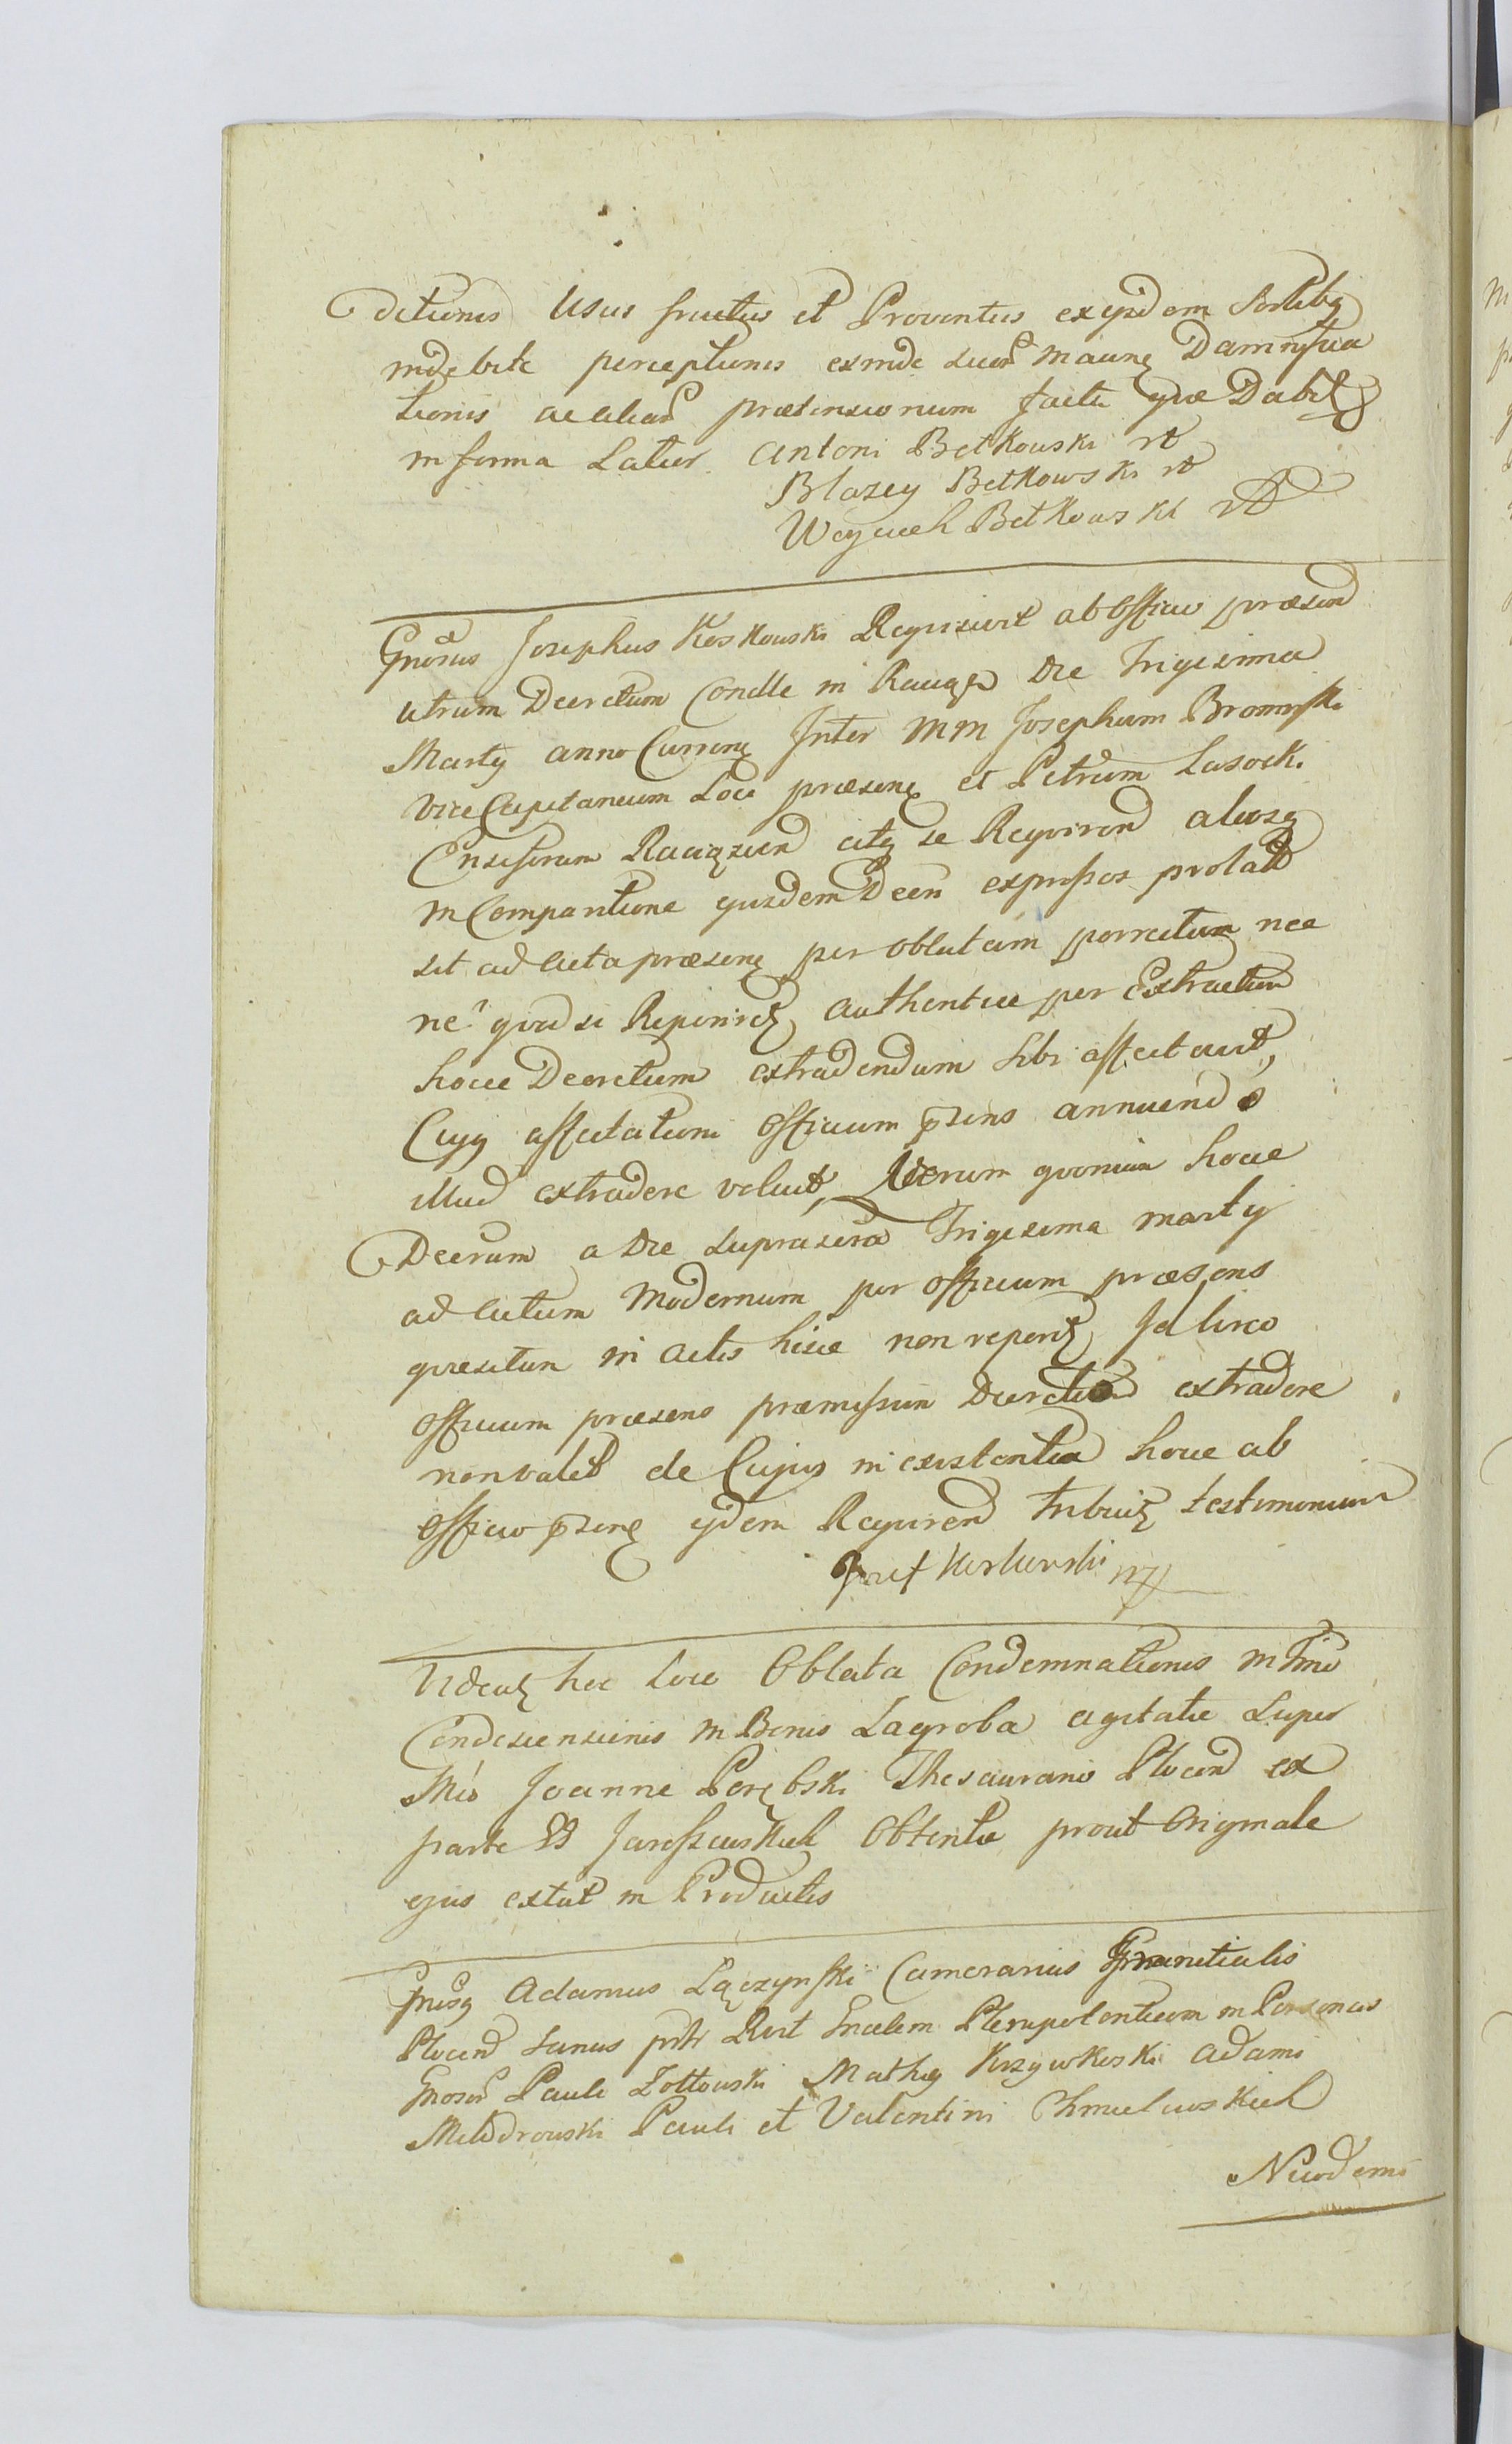 ditionis Usus fructus et Proventus ex ijsdem Sortibq
indebite perceptionis exinde Lucri Maune Damnifica
tionis ac aliar praetensionum facta quae Dabit
in forma Latior. Antoni Betkowski
Blazey Betkowski
Woyciech Betkowski
Gnosus Josephus Koskowski Requisivit ab Officio praesend
utrum Decretum Condle in Raciąż Die Trigesima
Martij anno Curren Inter MM Josephum Bromirski
ViceCapitaneum Loci praesen et Petrum Lasocki
Ensiferum Raciązien atq se Requirend aliosq
in Comparitione ejusdem Decri expressos prolatt
sit ad acta praesen per oblatam porrectum nec
ne? quod si Reperiret authentice per Extractum
hocce Decretum extradendum sibi affectavit,
Cujq affectationi Officium psens annuendo
illud extradere voluit, Verum quoniam hocce
Decrum a Die Suprascra Trigesima Martij
ad actum Modernum per Officium praesens
quaesitum in Actis hisce non reperit, Idcirco
Officium praesens praemissum Decretum extradere
non valet de Cujus inexistentia hocce ab
Officio psen ejdem Requirend tribuit testimonium
Jozef Koskowski
Videat hoc Loco Oblata Condemnationis in Tmno
Condescensionis in Bonis Zagroba agitatae Super
Mco Joanne Porębski Thesaurario Plocen ex
parte GG Jaroszewskich Obtentae prout Originale
ejus extat in Productis
Gnosq Adamus Łączynski Camerarius Granitialis
Plocen Sanus prtr Rort Gnalem Plenipotentiam in Personas
Gnosor Pauli Zołtowski Mathię Krzywkoski Adami
Modrowski Pauli et Valentini Chmielewskich
Nicodemi